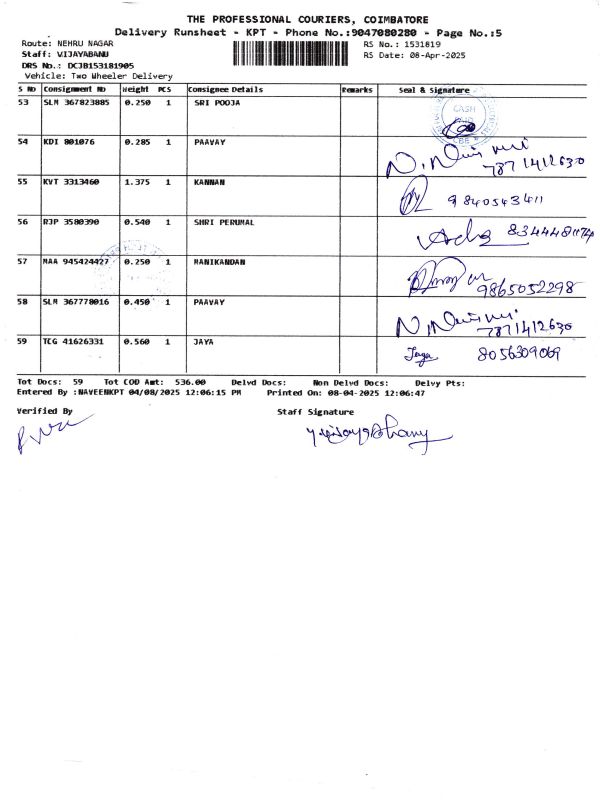 THE PROFESSIONAL COURIERS, COIMBATORE
Delivery Runsheet - KPT - Phone No.:9047080280 - Page No.:5
Route: NEHRU NAGAR RS No.: 1531819
Staff: VIJAYABANU RS Date: 08-Apr-2025
DRS No.: DCJB153181905
Vehicle: Two Wheeler Delivery
S No Consignment No Weight PCS Consignee Details Remarks Seal & Signature
53 SLM 367823885 0.250 1 SRI POOJA CASH
54 KDI 801076 0.285 1 PAAVAY 7871412630
55 KVT 3313460 1.375 1 KANNAN 9840543411
56 RJP 3580390 0.540 1 SHRI PERUMAL
57 MAA 945424427 0.250 1 MANIKANDAN 9865052298
58 SLM 367778016 0.450 1 PAAVAY 7871412630
59 TCG 41626331 0.560 1 JAYA Jaya 8056309069
Tot Docs: 59 Tot COD Amt: 536.00 Delvd Docs: Non Delvd Docs: Delvy Pts:
Entered By :NAVEENKPT 04/08/2025 12:06:15 PM Printed On: 08-04-2025 12:06:47
Verified By Staff Signature